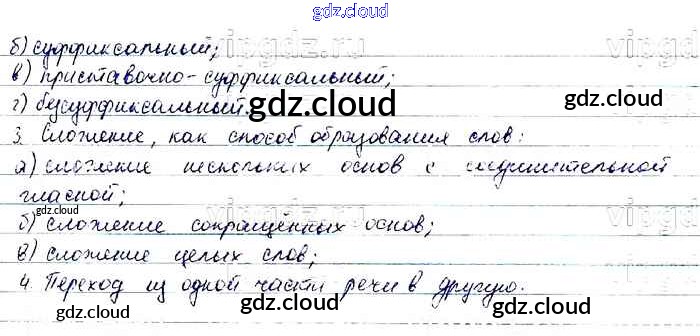 gdz.cloud
б) суффиксальный; vipgdz.ru
в) приставочно-суффиксальный;
г) бессуффиксальный. gdz.cloud
3. Сложение, как способ образования слов:
gdz.cloud
а) сложение нескольких основ с соединительной
гласной;
gdz.cloud
б) сложение сокращённых основ;
в) сложение целых слов;
gdz.cloud
4. Переход из одной части речи в другую.
gdz.cloud gdz.cloud